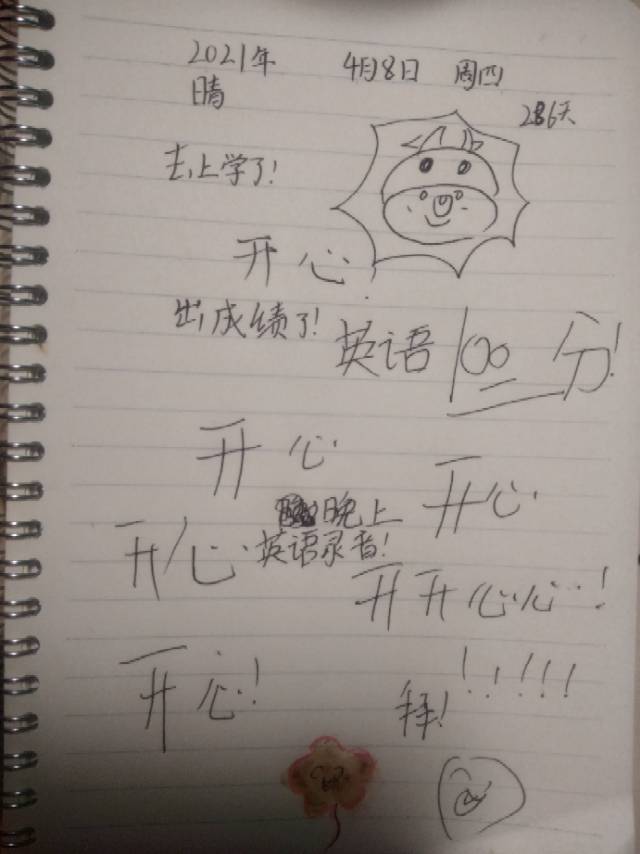 2021年 4月8日 周四
晴
286天
去上学了!
开心!
出成绩了!
英语100分!
开心
开心
晚上
开心 英语录音!
开开心心!
开心!
拜! !!!!!